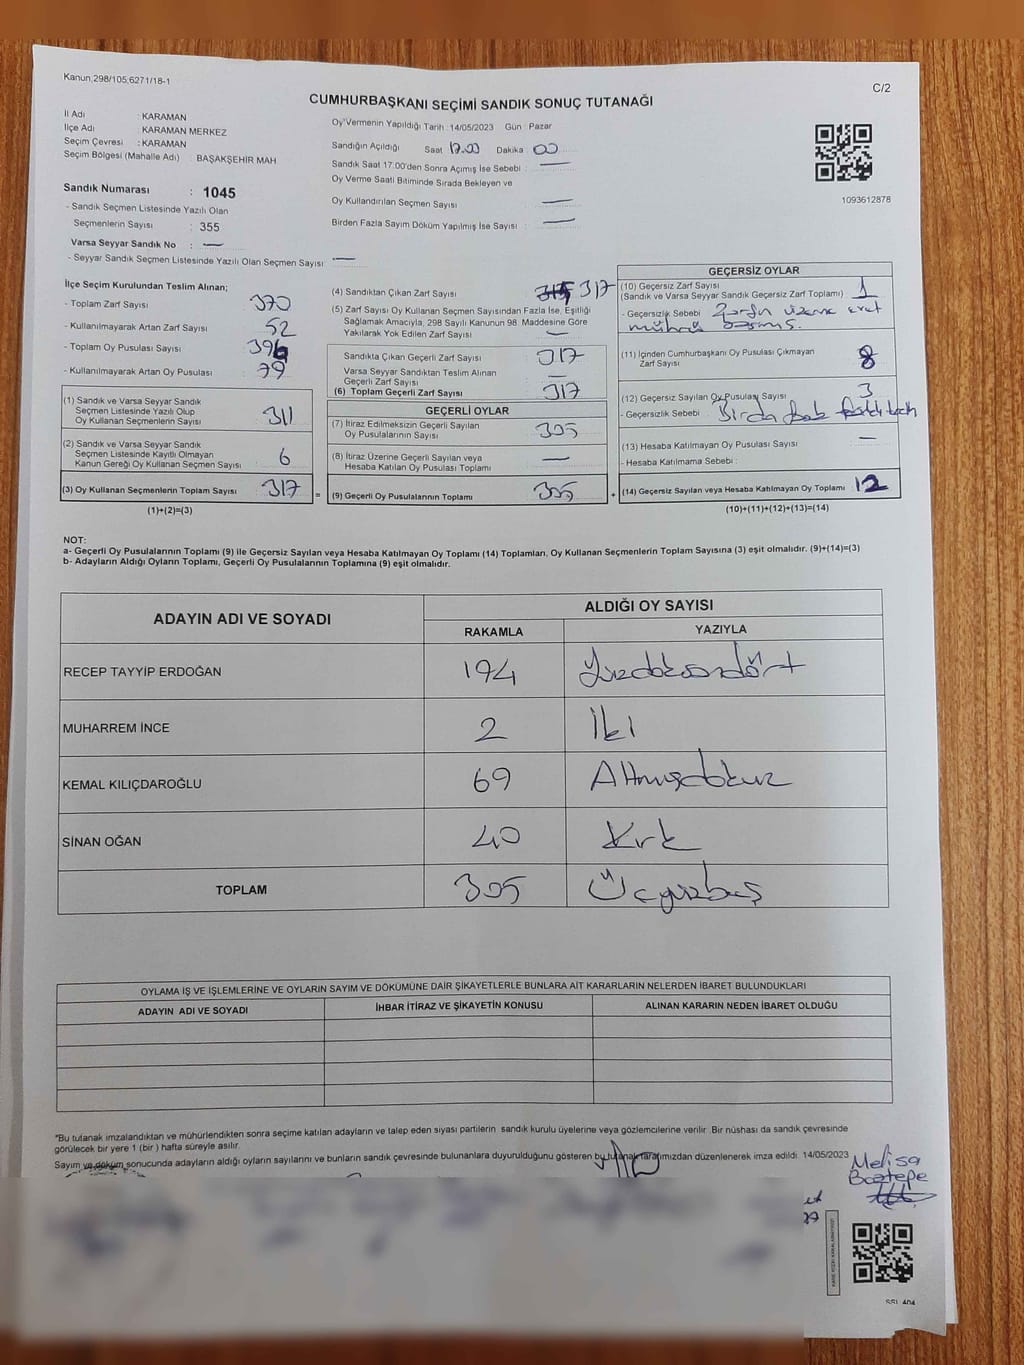 Kanun;298/105;6271/18-1
C/2
CUMHURBAŞKANI SEÇİMİ SANDIK SONUÇ TUTANAĞI
İl Adı : KARAMAN
İlçe Adı : KARAMAN MERKEZ
Seçim Çevresi : KARAMAN
Seçim Bölgesi (Mahalle Adı) : BAŞAKŞEHİR MAH
Sandık Numarası : 1045
- Sandık Seçmen Listesinde Yazılı Olan
Seçmenlerin Sayısı : 355
Varsa Seyyar Sandık No : —
- Seyyar Sandık Seçmen Listesinde Yazılı Olan Seçmen Sayısı : —
Oy Vermenin Yapıldığı Tarih : 14/05/2023 Gün : Pazar
Sandığın Açıldığı Saat 17.00 Dakika : 00
Sandık Saat 17.00'den Sonra Açımış İse Sebebi : —
Oy Verme Saati Bitiminde Sırada Bekleyen ve
Oy Kullandırılan Seçmen Sayısı : —
Birden Fazla Sayım Döküm Yapılmış İse Sayısı : —
1093612878
İlçe Seçim Kurulundan Teslim Alınan;
- Toplam Zarf Sayısı : 370
- Kullanılmayarak Artan Zarf Sayısı : 52
- Toplam Oy Pusulası Sayısı : 396
- Kullanılmayarak Artan Oy Pusulası : 79
(1) Sandık ve Varsa Seyyar Sandık
Seçmen Listesinde Yazılı Olup
Oy Kullanan Seçmenlerin Sayısı : 311
(2) Sandık ve Varsa Seyyar Sandık
Seçmen Listesinde Kayıtlı Olmayan
Kanun Gereği Oy Kullanan Seçmen Sayısı : 6
(3) Oy Kullanan Seçmenlerin Toplam Sayısı : 317 =
(1)+(2)=(3)
(4) Sandıktan Çıkan Zarf Sayısı : 317
(5) Zarf Sayısı Oy Kullanan Seçmen Sayısından Fazla İse, Eşitliği
Sağlamak Amacıyla, 298 Sayılı Kanunun 98. Maddesine Göre
Yakılarak Yok Edilen Zarf Sayısı : —
Sandıkta Çıkan Geçerli Zarf Sayısı : 317
Varsa Seyyar Sandıktan Teslim Alınan
Geçerli Zarf Sayısı : —
(6) Toplam Geçerli Zarf Sayısı : 317
GEÇERLİ OYLAR
(7) İtiraz Edilmeksizin Geçerli Sayılan
Oy Pusulalarının Sayısı : 305
(8) İtiraz Üzerine Geçerli Sayılan veya
Hesaba Katılan Oy Pusulası Toplamı : —
(9) Geçerli Oy Pusulalarının Toplamı : 305 +
GEÇERSİZ OYLAR
(10) Geçersiz Zarf Sayısı
(Sandık ve Varsa Seyyar Sandık Geçersiz Zarf Toplamı) : 1
- Geçersizlik Sebebi : Zarfın üzerine evet
mührü basmış.
(11) İçinden Cumhurbaşkanı Oy Pusulası Çıkmayan
Zarf Sayısı : 8
(12) Geçersiz Sayılan Oy Pusulası Sayısı : 3
- Geçersizlik Sebebi : Birden fazla
(13) Hesaba Katılmayan Oy Pusulası Sayısı : —
- Hesaba Katılmama Sebebi :
(14) Geçersiz Sayılan veya Hesaba Katılmayan Oy Toplamı : 12
(10)+(11)+(12)+(13)=(14)
NOT:
a- Geçerli Oy Pusulalarının Toplamı (9) ile Geçersiz Sayılan veya Hesaba Katılmayan Oy Toplamı (14) Toplamları, Oy Kullanan Seçmenlerin Toplam Sayısına (3) eşit olmalıdır. (9)+(14)=(3)
b- Adayların Aldığı Oyların Toplamı, Geçerli Oy Pusulalarının Toplamına (9) eşit olmalıdır.
ADAYIN ADI VE SOYADI ALDIĞI OY SAYISI
RAKAMLA YAZIYLA
RECEP TAYYİP ERDOĞAN 194 Yüzdoksandört
MUHARREM İNCE 2 İki
KEMAL KILIÇDAROĞLU 69 Altmışdokuz
SİNAN OĞAN 40 Kırk
TOPLAM 305 Üçyüzbeş
OYLAMA İŞ VE İŞLEMLERİNE VE OYLARIN SAYIM VE DÖKÜMÜNE DAİR ŞİKAYETLERLE BUNLARA AİT KARARLARIN NELERDEN İBARET BULUNDUKLARI
ADAYIN ADI VE SOYADI İHBAR İTİRAZ VE ŞİKAYETİN KONUSU ALINAN KARARIN NEDEN İBARET OLDUĞU
*Bu tutanak imzalandıktan ve mühürlendikten sonra seçime katılan adayların ve talep eden siyasi partilerin sandık kurulu üyelerine veya gözlemcilerine verilir. Bir nüshası da sandık çevresinde
görülecek bir yere 1 (bir) hafta süreyle asılır.
Sayım ve döküm sonucunda adayların aldığı oyların sayılarını ve bunların sandık çevresinde bulunanlara duyurulduğunu gösteren bu tutanak tarafımızdan düzenlenerek imza edildi. 14/05/2023
Melisa
Boztepe